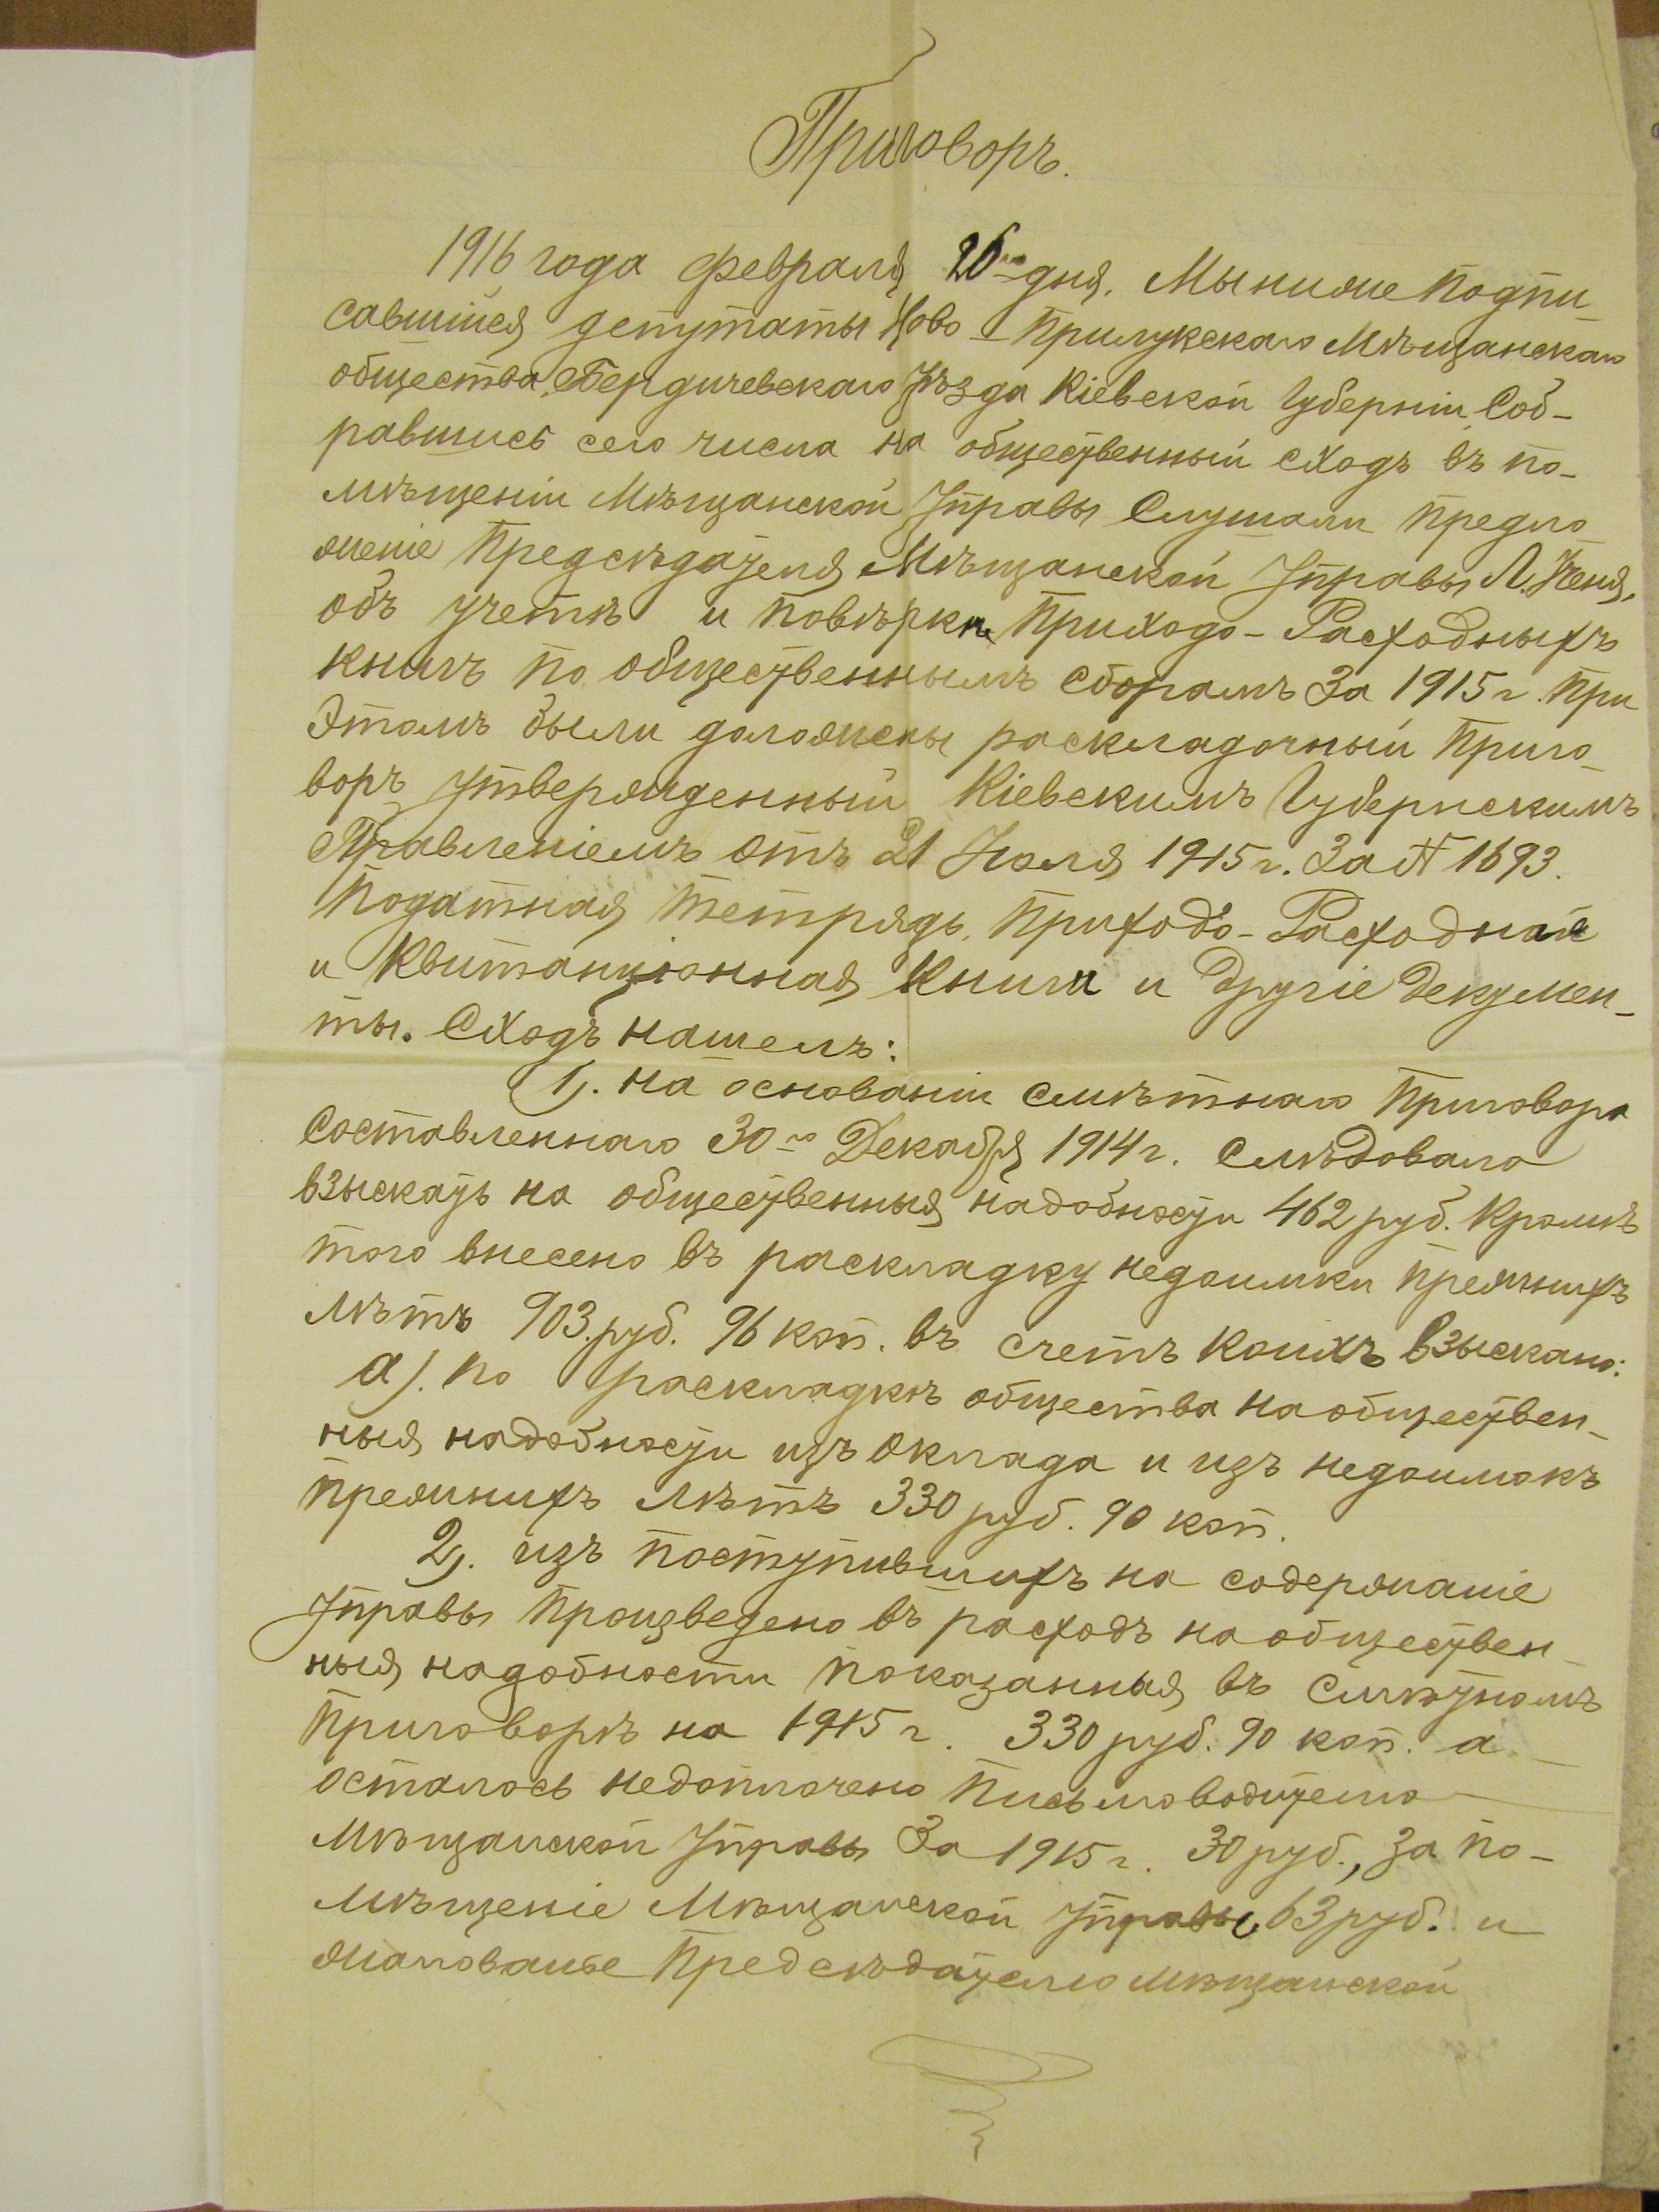 Приговоръ.
1916 года февраля 20го дня. Мы ниже подпи_
савшіеся депутаты Ново-Прилукскаго Мѣщанскаго
общества, Бердичевскаго Уѣзда Кіевской Губерніи, Соб-
равшись сего числа на общественный сходъ въ по-
мѣщеніи Мѣщанской Управы Слушали предло_
женіе Предсѣдателя Мѣщанской Управы Л.
объ учетѣ и повѣркѣ Приходо-Расходныхъ
книгъ по общественнымъ сборамъ За 1915 г. При
Этомъ были доложены раскладочный Приго_
воръ утвержденный Кіевскимъ Губернскимъ
Правленіемъ отъ 21 Іюля 1915 г. За № 1693.
Податная тетрядь, Приходо-Расходная
и Квитанціонная Книги и другіе декумен_
ты. Сходъ нашелъ:
1). На основаніи смѣтнаго Приговора
Составленнаго 30го Декабря 1914 г. Слѣдовало
взыскать на общественныя надобности 462 руб. Кромѣ
того внесено въ раскладку недоимки прежнихъ
лѣтъ 903. руб. 96 коп. въ счетъ коихъ взыскано:
а). по раскладкѣ общества на обществен_
ныя надобности изъ оклада и изъ недоимокъ
прежнихъ лѣтъ 330 руб. 90 коп.
2). изъ поступившихъ на содержаніе
Управы Произведено въ расходъ на обществен_
ныя надобности показанныя въ Смѣтномъ
Приговорѣ на 1915 г. 330 руб. 90 коп. а
осталось недоплачено Письмоводителю
Мѣщанской Управы За 1915 г. 30 руб., за по-
мѣщеніе Мѣщанской Управы 63 руб. и
жалованье Предсѣдателю Мѣщанской